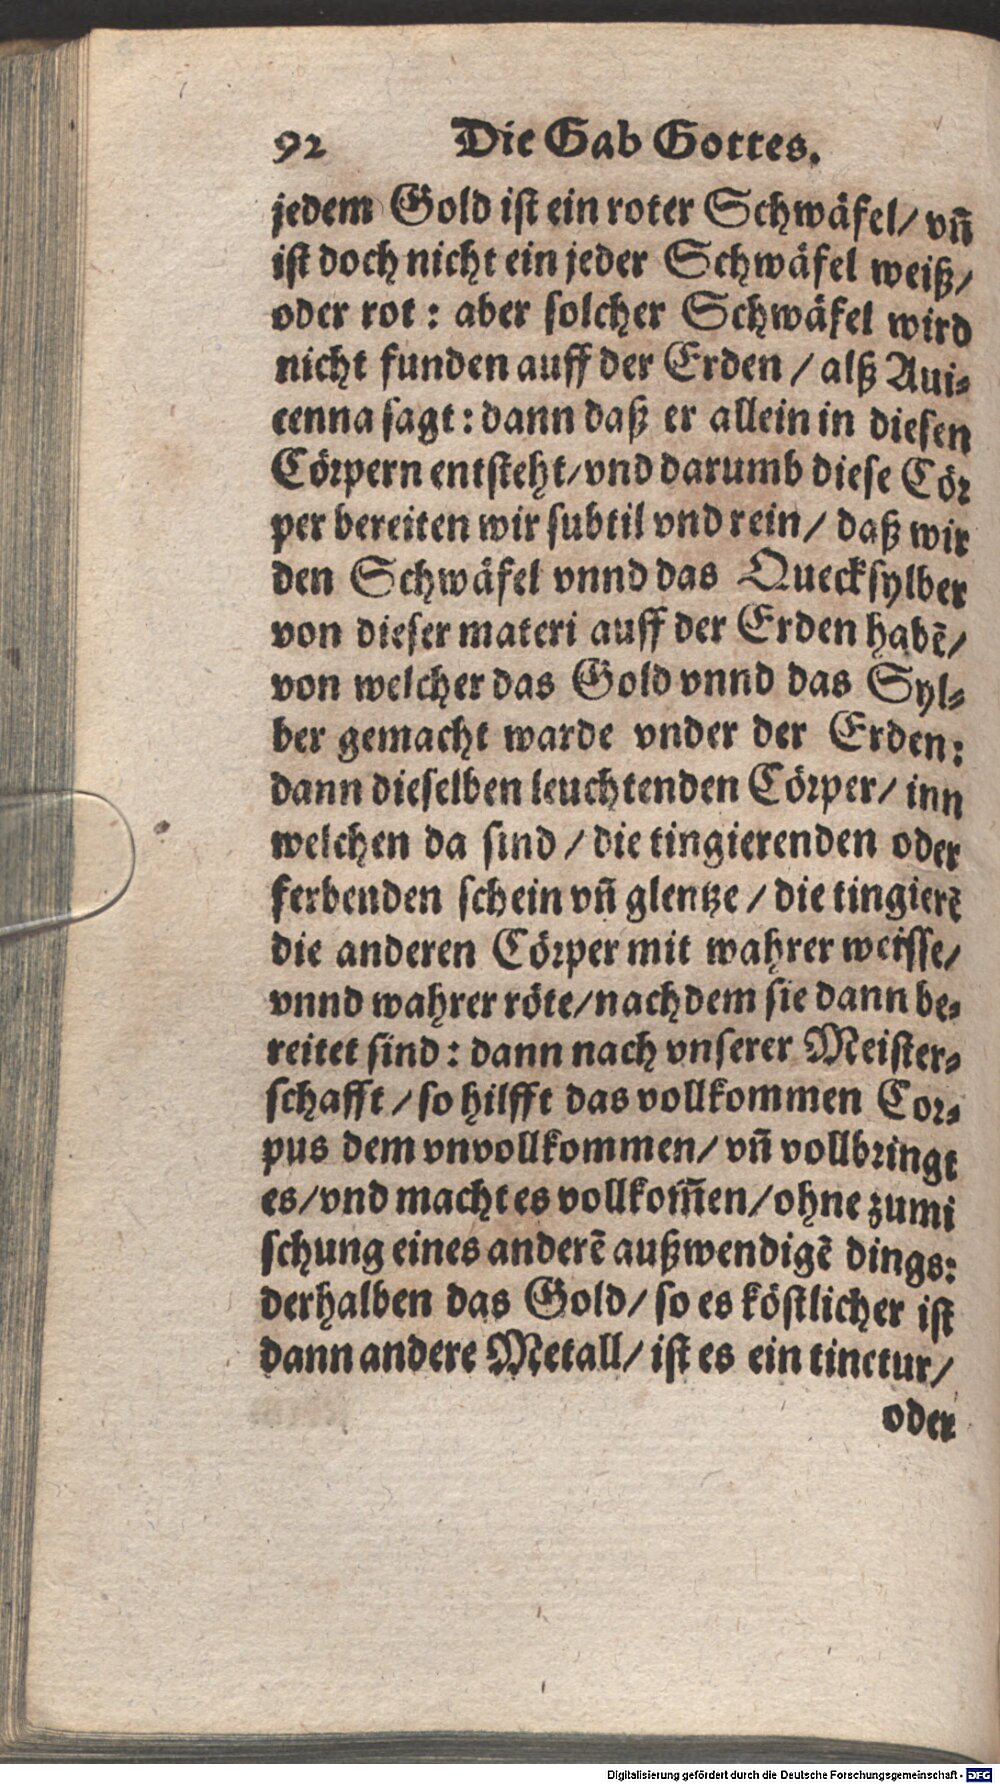 92 Die Gab Gottes.
jedem Gold ist ein roter Schwäfel/ vñ
ist doch nicht ein jeder Schwäfel weiß/
oder rot: aber solcher Schwäfel wird
nicht funden auff der Erden / alß Aui-
cenna sagt: dann daß er allein in diesen
Cörpern entsteht/vnd darumb diese Cör
per bereiten wir subtil vnd rein/ daß wir
den Schwäfel vnnd das Quecksylber
von dieser materi auff der Erden habẽ/
von welcher das Gold vnnd das Syl-
ber gemacht warde vnder der Erden:
dann dieselben leuchtenden Cörper/ inn
welchen da sind / die tingierenden oder
ferbenden schein vñ glentze / die tingierẽ
die anderen Cörper mit wahrer weisse/
vnnd wahrer röte/nach dem sie dann be-
reitet sind: dann nach vnserer Meister-
schafft / so hilfft das vollkommen Cor-
pus dem vnvollkommen/ vñ vollbringt
es/vnd macht es vollkom̃en/ohne zumi
schung eines anderẽ außwendigẽ dings:
derhalben das Gold/ so es köstlicher ist
dann andere Metall/ ist es ein tinctur/
oder
Digitalisierung gefördert durch die Deutsche Forschungsgemeinschaft - DFG